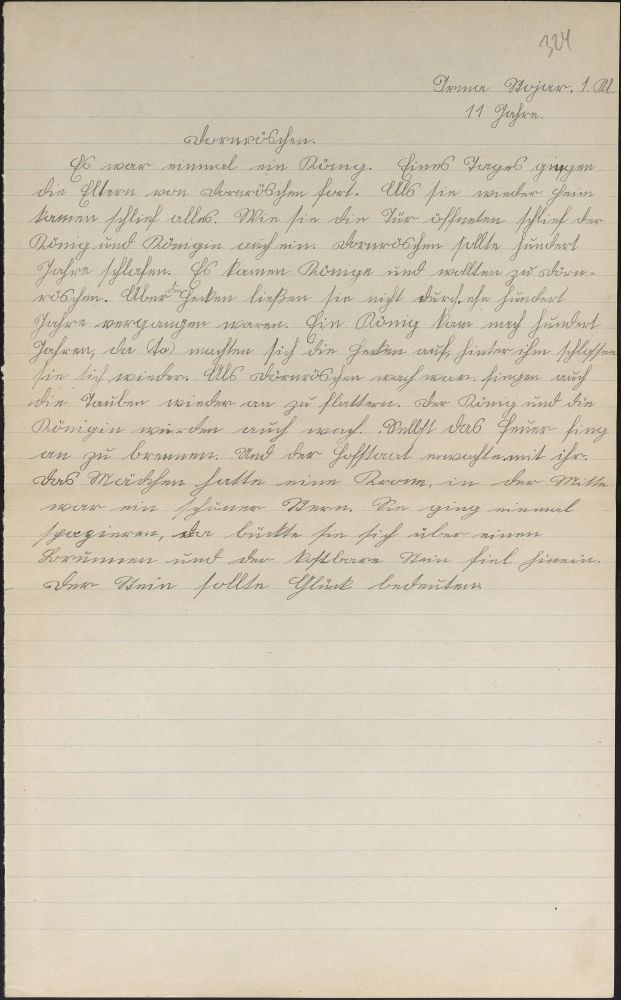 324
Irma Stojar, 1. Kl.
11 Jahre.
Dornröschen.
Es war einmal ein König. Eines Tages gingen
die Eltern von Dornröschen fort. Als sie wieder heim
kamen schlief alles. Wie sie die Tür öffneten schlief der
König und Königin auch ein. Dornröschen sollte hundert
Jahre schlafen. Es kamen Könige und wollten zu Dorn-
röschen. Aber die Hecken ließen sie nicht durch, ehe hundert
Jahre vergangen waren. Ein König kam nach hundert
Jahren, da (so) machten sich die Hecken auf, hinter ihm schlossen
sie sich wieder. Als Dornröschen wach war fingen auch
die Tauben wieder an zu flattern. Der König und die
Königin wurden auch wach. Selbst das Feuer fing
an zu brennen. Und der Hofstaat erwachte mit ihr.
Das Mädchen hatte eine Krone, in der Mitte
war ein schöner Stern. Sie ging einmal
spazieren, da bückte sie sich über einen
Brunnen und der kostbare Stein fiel hinein.
Der Stein sollte Glück bedeuten.